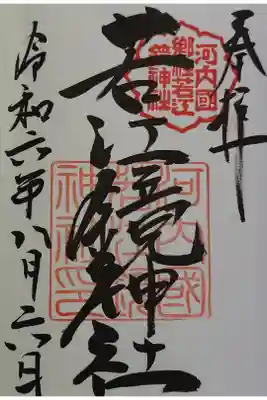 奉拝
河内國
郷社若江
鏡神社
若江鏡神社
河内國
令和六年八月二六日